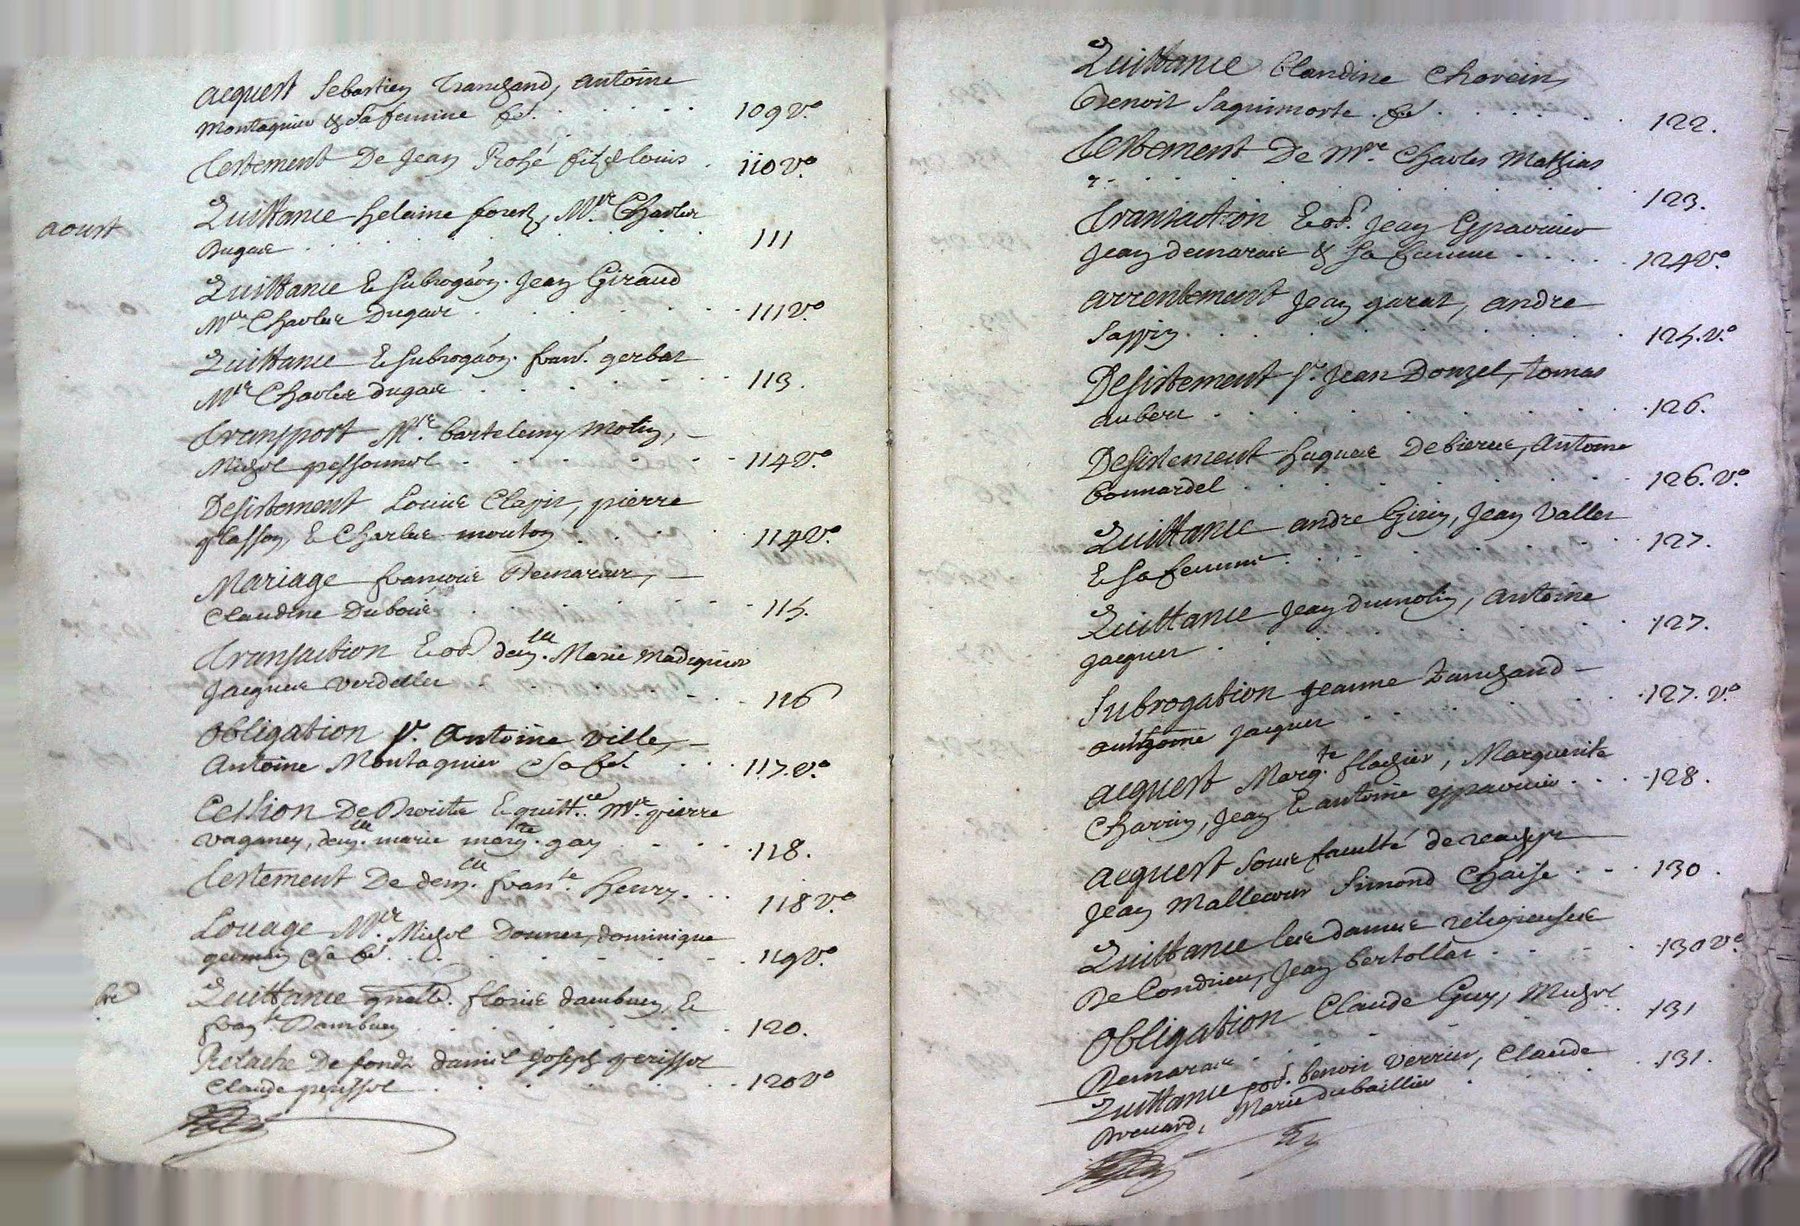 acquest Sebastien Tranchand, antoine
Montagnier & sa femme &c. 109 v.o
Testement De Jean Rohé fils de louis 110 v.o
aoust
Quittance helaine forest, M.re Charles
Dugaic 111
Quittance & subrogaõn. Jean Giraud
M.re Charles Dugaic 111 v.o
Quittance & subrogaõn. fran.s gerbat
M.re Charles dugaic 113.
Transport M.re bartelemy Molin,
Michol 114 v.o
Desistement Louise Clapit, pierre
glasson, & Charles mouton 114 v.o
Mariage francoise Demarair,
Claudine Duboie 115.
Transaction dem.lle Marie
Jacques verdellet 116
Obligation s.r Antoine ville,
Antoine Montagnier & sa fe. 117. v.o
Cession De Droite & quitt.ce M.re pierre
vaganey, dem.lle marie marg.te gay 118.
Testement De dem.lle fran.se henry. 118 v.o
Louage M.re Michol Donnet, dominique
germain & sa fe. 119 v.o
bre
Quittance florie dambuen, &
fran.s Dambuen 120.
Relache De fonds daniel Joseph perissol
Claude perissol 120 v.o
Quittance Clandine Chovein,
Benoit Saquimorte. &c. 122.
Testement De M.re Charles Mathias
123.
Transaction Jean Epavieier
Jean demaraie & sa femme 124 v.o
arrentement Jean garat, andre
Sappin 125. v.o
Desistement s.r Jean Donzel, tomas
aubert 126.
Desistement hugues Debierre, Antoine
bonnardel 126. v.o
Quittance andre Girin, Jean Vallet
& sa femme 127.
Quittance Jean dumolin, antoine
Jacquier 127.
Subrogation Jeanne Tranchand
anthoine Jacquier 127. v.o
acquest Marg.te flachier, Marguerite
Charvin, Jean & antoine epavieier 128.
acquest sous faculté de reachept
Jean Mallecour Simond Chaise 130.
Quittance les dames religieuses
De Condrieu, Jean bertollat 130 v.o
Obligation Claude Guy, Michol
Demaraie 131
Quittance benoit verrier, Claude
Brouard, Marie dubaillier 131.